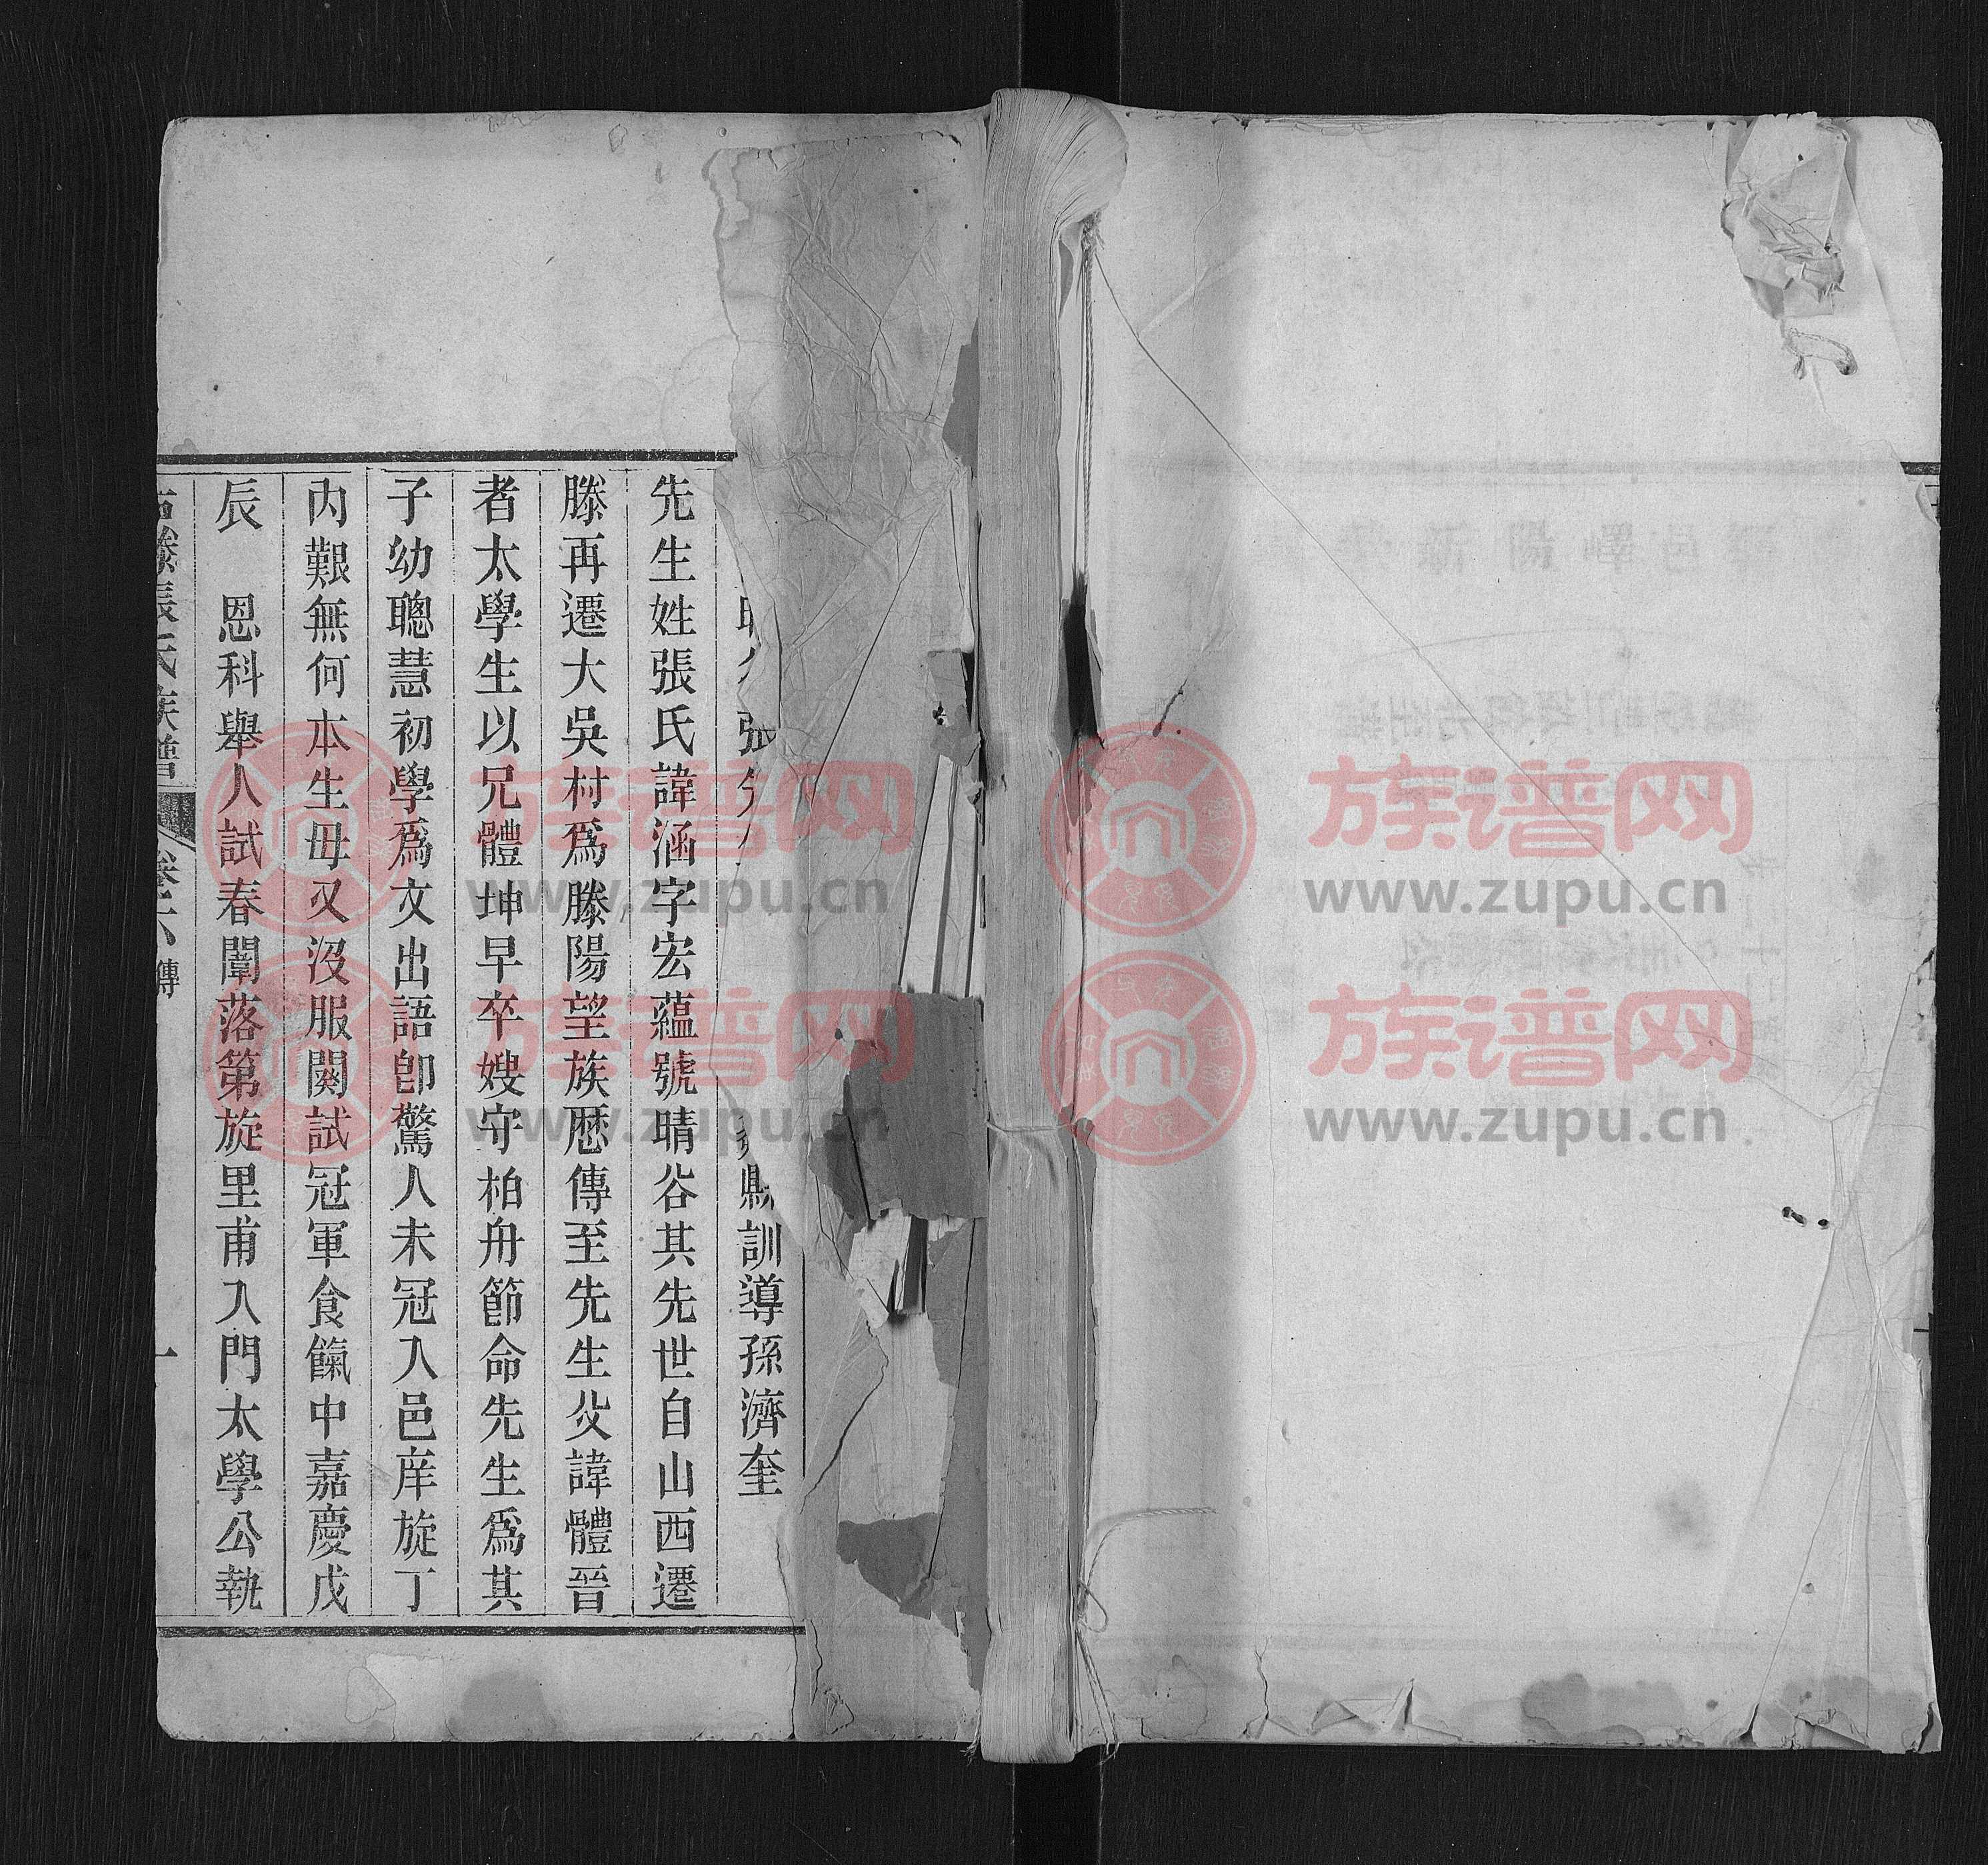 張
縣訓導孫濟奎
先生姓張氏諱涵字宏蘊號晴谷其先世自山西遷
滕再遷大吳村爲滕陽望族歷傳至先生父諱體晉
者太學生以兄體坤早卒嫂守柏舟節命先生爲其
子幼聰慧初學爲文出語卽驚人未冠入邑庠旋丁
內艱無何本生母又沒服闋試冠軍食餼中嘉慶戊
辰　恩科舉人試春闈落第旋里甫入門太學公執
滕張氏族譜
卷六
傳
一
族谱网
www.zupu.cn
族谱网
www.zupu.cn
族谱网
www.zupu.cn
族谱网
www.zupu.cn